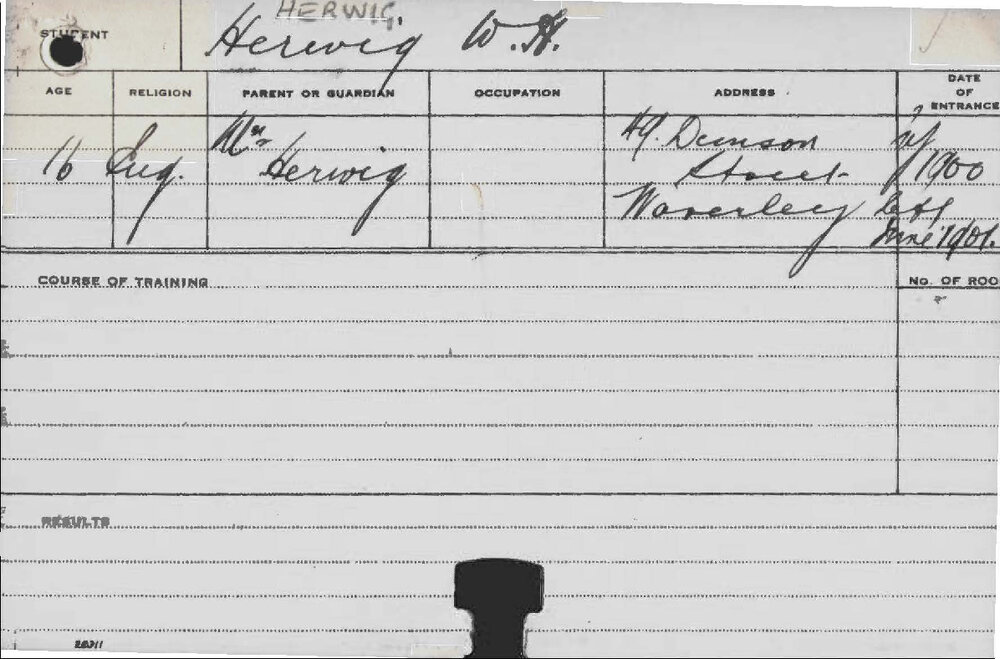 HERWIG.
STUDENT Herwig W. H.
AGE RELIGION PARENT OR GUARDIAN OCCUPATION ADDRESS DATE OF ENTRANCE
16 Eng. Mrs Herwig
49. Denison
Street
Waverley
1900
left
June 1901.
COURSE OF TRAINING
No. OF ROO
RESULTS